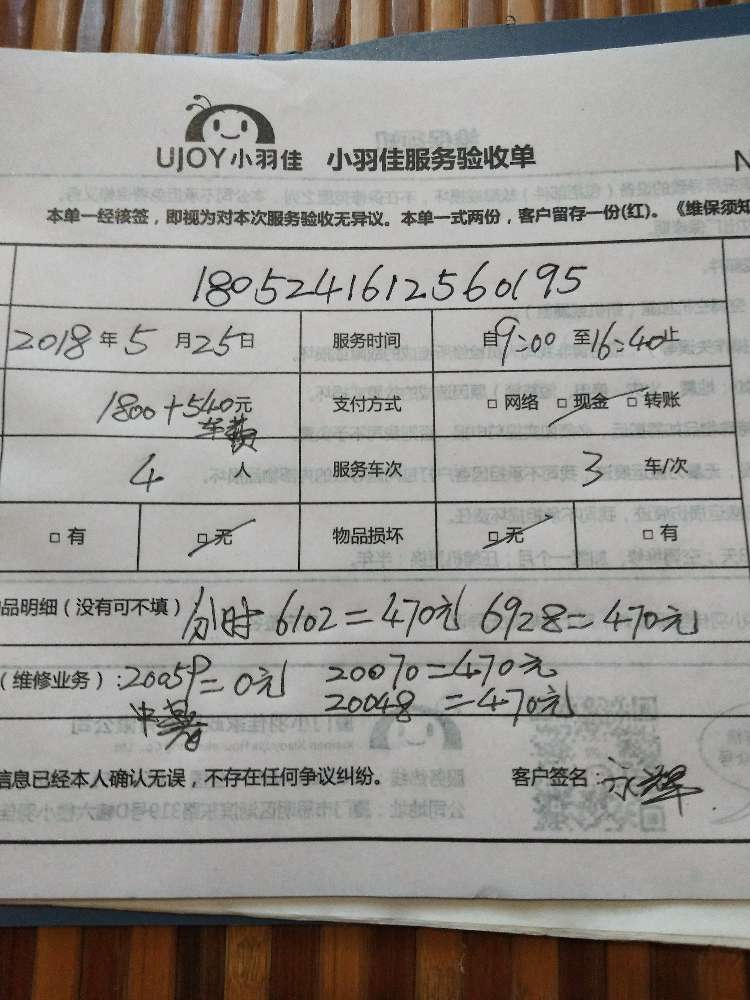 UJOY小羽佳 小羽佳服务验收单 N
本单一经核签，即视为对本次服务验收无异议。本单一式两份，客户留存一份(红)。《维保须知
1805241612560195
2018年5月25日 服务时间 自9:00至16:40止
1800+540元 支付方式 □网络 □现金 □转账
车费
4人 服务车次 3 车/次
□有 □无 物品损坏 □无 □有
品明细（没有可不填） 分时6102=470元 6928=470元
（维修业务）：20059=0元 20070=470元
中暑 20048=470元
信息已经本人确认无误，不存在任何争议纠纷。 客户签名：永辉